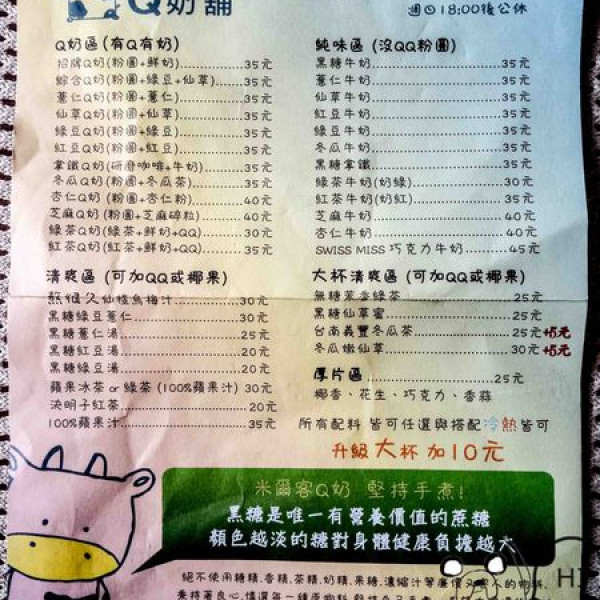 Q奶舖
週日18:00後公休
Q奶區(有Q有奶)
招牌Q奶(粉圓+鮮奶)..........35元
綜合Q奶(粉圓+綠豆+仙草)..........35元
薏仁Q奶(粉圓+薏仁)..........35元
仙草Q奶(粉圓+仙草)..........35元
綠豆Q奶(粉圓+綠豆)..........35元
紅豆Q奶(粉圓+紅豆)..........35元
拿鐵Q奶(研磨咖啡+牛奶)..........35元
冬瓜Q奶(粉圓+冬瓜茶)..........35元
杏仁Q奶(粉圓+杏仁粉)..........40元
芝麻Q奶(粉圓+芝麻碎粒)..........40元
綠茶Q奶(綠茶+鮮奶+QQ)..........30元
紅茶Q奶(紅茶+鮮奶+QQ)..........35元
純味區(沒QQ粉圓)
黑糖牛奶..........35元
薏仁牛奶..........35元
仙草牛奶..........35元
紅豆牛奶..........35元
綠豆牛奶..........35元
冬瓜牛奶..........35元
黑糖拿鐵..........35元
綠茶牛奶(奶綠)..........30元
紅茶牛奶(奶紅)..........35元
芝麻牛奶..........40元
杏仁牛奶..........40元
SWISS MISS巧克力牛奶..........45元
清爽區(可加QQ或椰果)
熬很久仙楂烏梅汁..........30元
黑糖綠豆薏仁..........30元
黑糖薏仁湯..........25元
黑糖紅豆湯..........20元
黑糖綠豆湯..........20元
蘋果冰茶or綠茶(100%蘋果汁)30元
決明子紅茶..........20元
100%蘋果汁..........35元
大杯清爽區(可加QQ或椰果)
無糖茉香綠茶..........25元
黑糖仙草蜜..........25元
台南義豐冬瓜茶..........25元+5元
冬瓜嫩仙草..........30元+5元
厚片區..........25元
椰香、花生、巧克力、香蒜
所有配料 皆可任選與搭配冷熱皆可
升級大杯加10元
米爾客Q奶 堅持手煮!
黑糖是唯一有營養價值的蔗糖
顏色越淡的糖對身體健康負擔越大
絕不使用糖精、香精、茶精、奶精、果糖、濃縮汁等廉價又害人的物料,